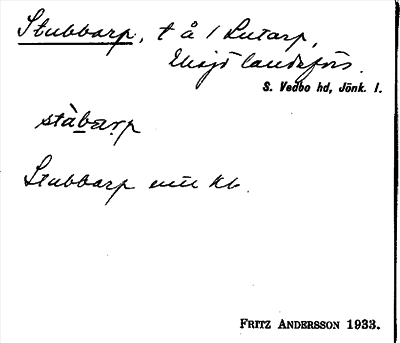 Stubbarp, t å 1 Lutarp,
Eksjö landsförs.
S. Vedbo hd, Jönk. l.
stàbarp
Stubbarp enl Kb.
FRITZ ANDERSSON 1933.